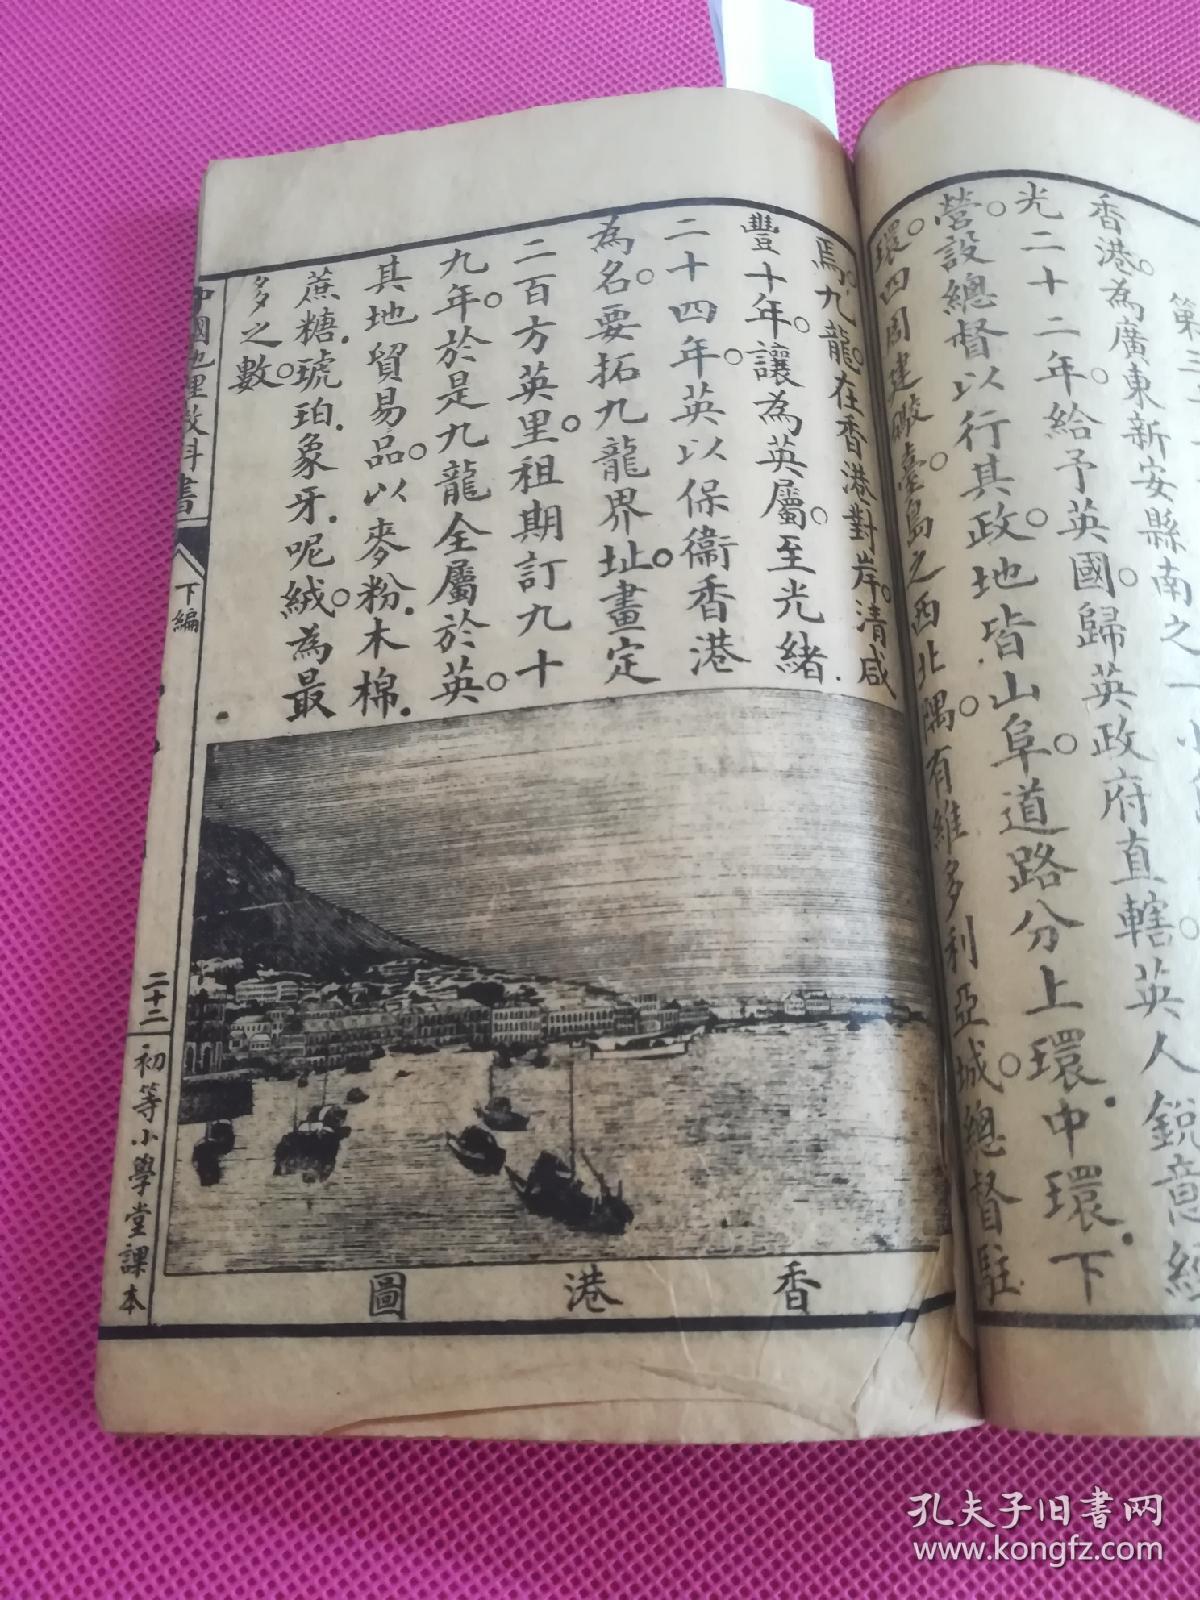 香港。為廣東新安縣南之一小
光二十二年。給予英國。歸英政府直轄。英人銳意經
營。設總督以行其政。地皆山阜。道路分上環.中環.下
環。四周建礟臺。島之西北隅。有維多利亞城。總督駐
焉。九龍。在香港對岸。清咸
豐十年。讓為英屬。至光緒
二十四年。英以保衞香港
為名。要拓九龍界址。畫定
二百方英里。租期訂九十
九年。於是九龍全屬於英。
其地貿易品。以麥粉.木棉.
蔗糖.琥珀.象牙.呢絨。為最
多之數。
香港圖
中國地理教科書
下編
二十二
初等小學堂課本
孔夫子旧书网
www.kongfz.com